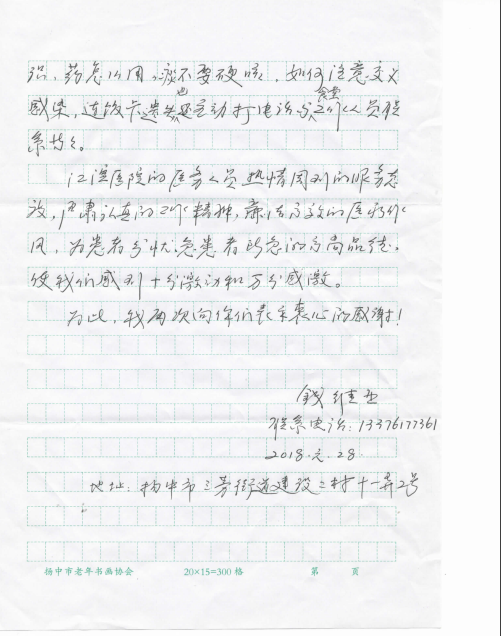 识，药怎么用，痰不要硬咳，如何注意交叉
感染，连饭卡遗失也还主动打电话与食堂工作人员联
系等等。
江滨医院的医务人员热情周到的服务态
度，严肃认真的工作精神，廉洁高效的医疗作
风，为患者分忧、急患者所急的高尚品德。
使我们感到十分激动和万分感激。
为此，我再次向你们表示衷心的感谢！
钱维
联系电话：13376177361
2018.元.28.
地址：扬中市三茅街道建设二村十一弄2号
扬中市老年书画协会 20×15=300 格 第 页